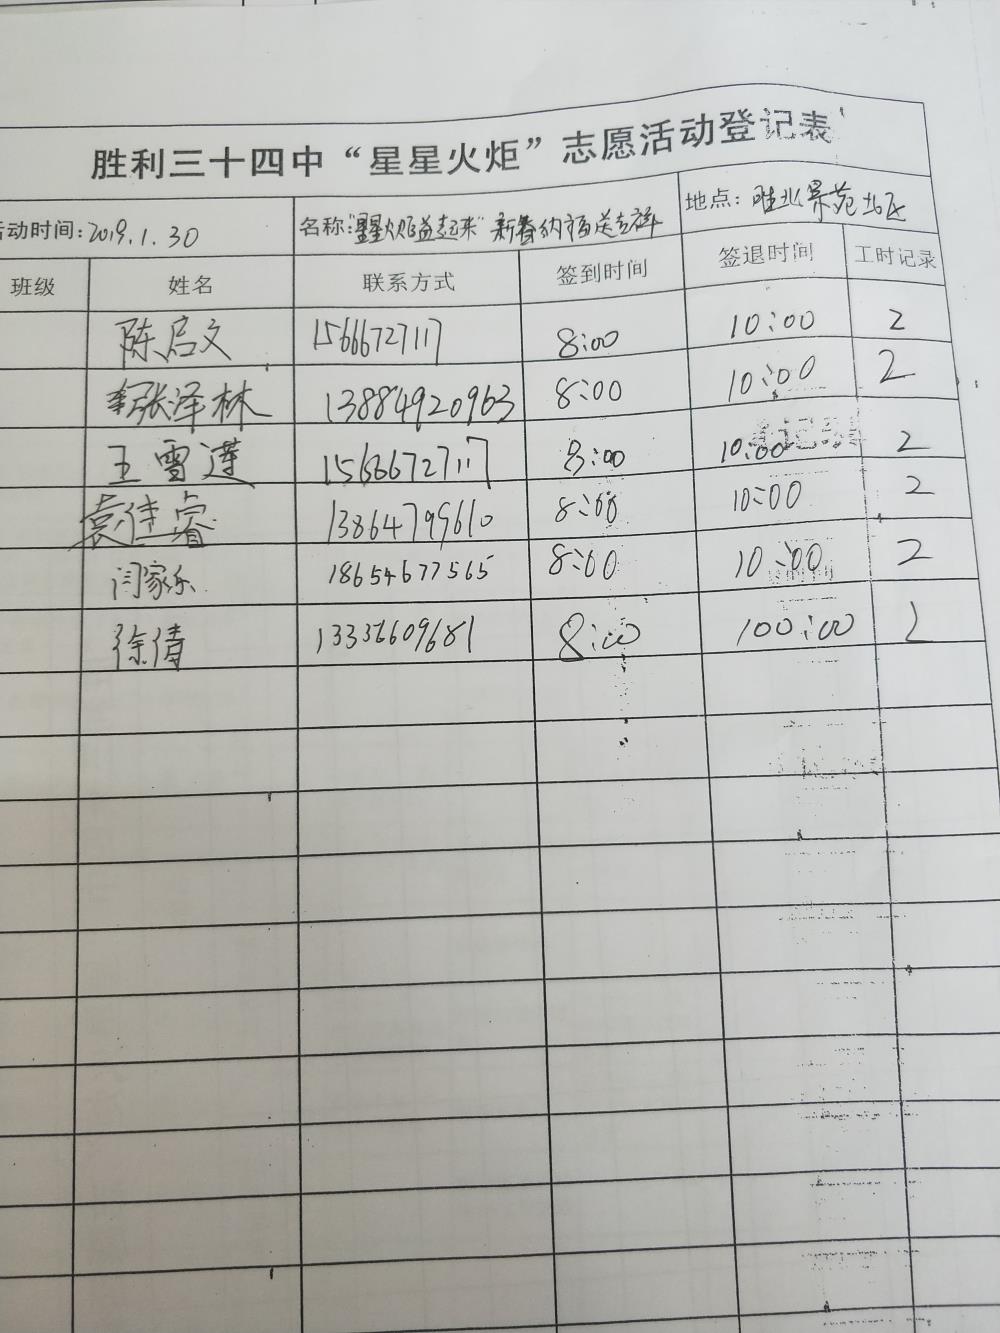 胜利三十四中“星星火炬”志愿活动登记表
活动时间:2019.1.30 名称:“星星火炬益起来”新春纳福送吉祥 地点:胜北景苑北区
班级 姓名 联系方式 签到时间 签退时间 工时记录
陈启文 15666727117 8:00 10:00 2
张泽林 13884920963 8:00 10:00 2
王雪莲 15666727117 8:00 10:00 2
袁佳睿 13864799610 8:00 10:00 2
闫家乐 18654677565 8:00 10:00 2
徐倩 13336609681 8:00 100:00 2